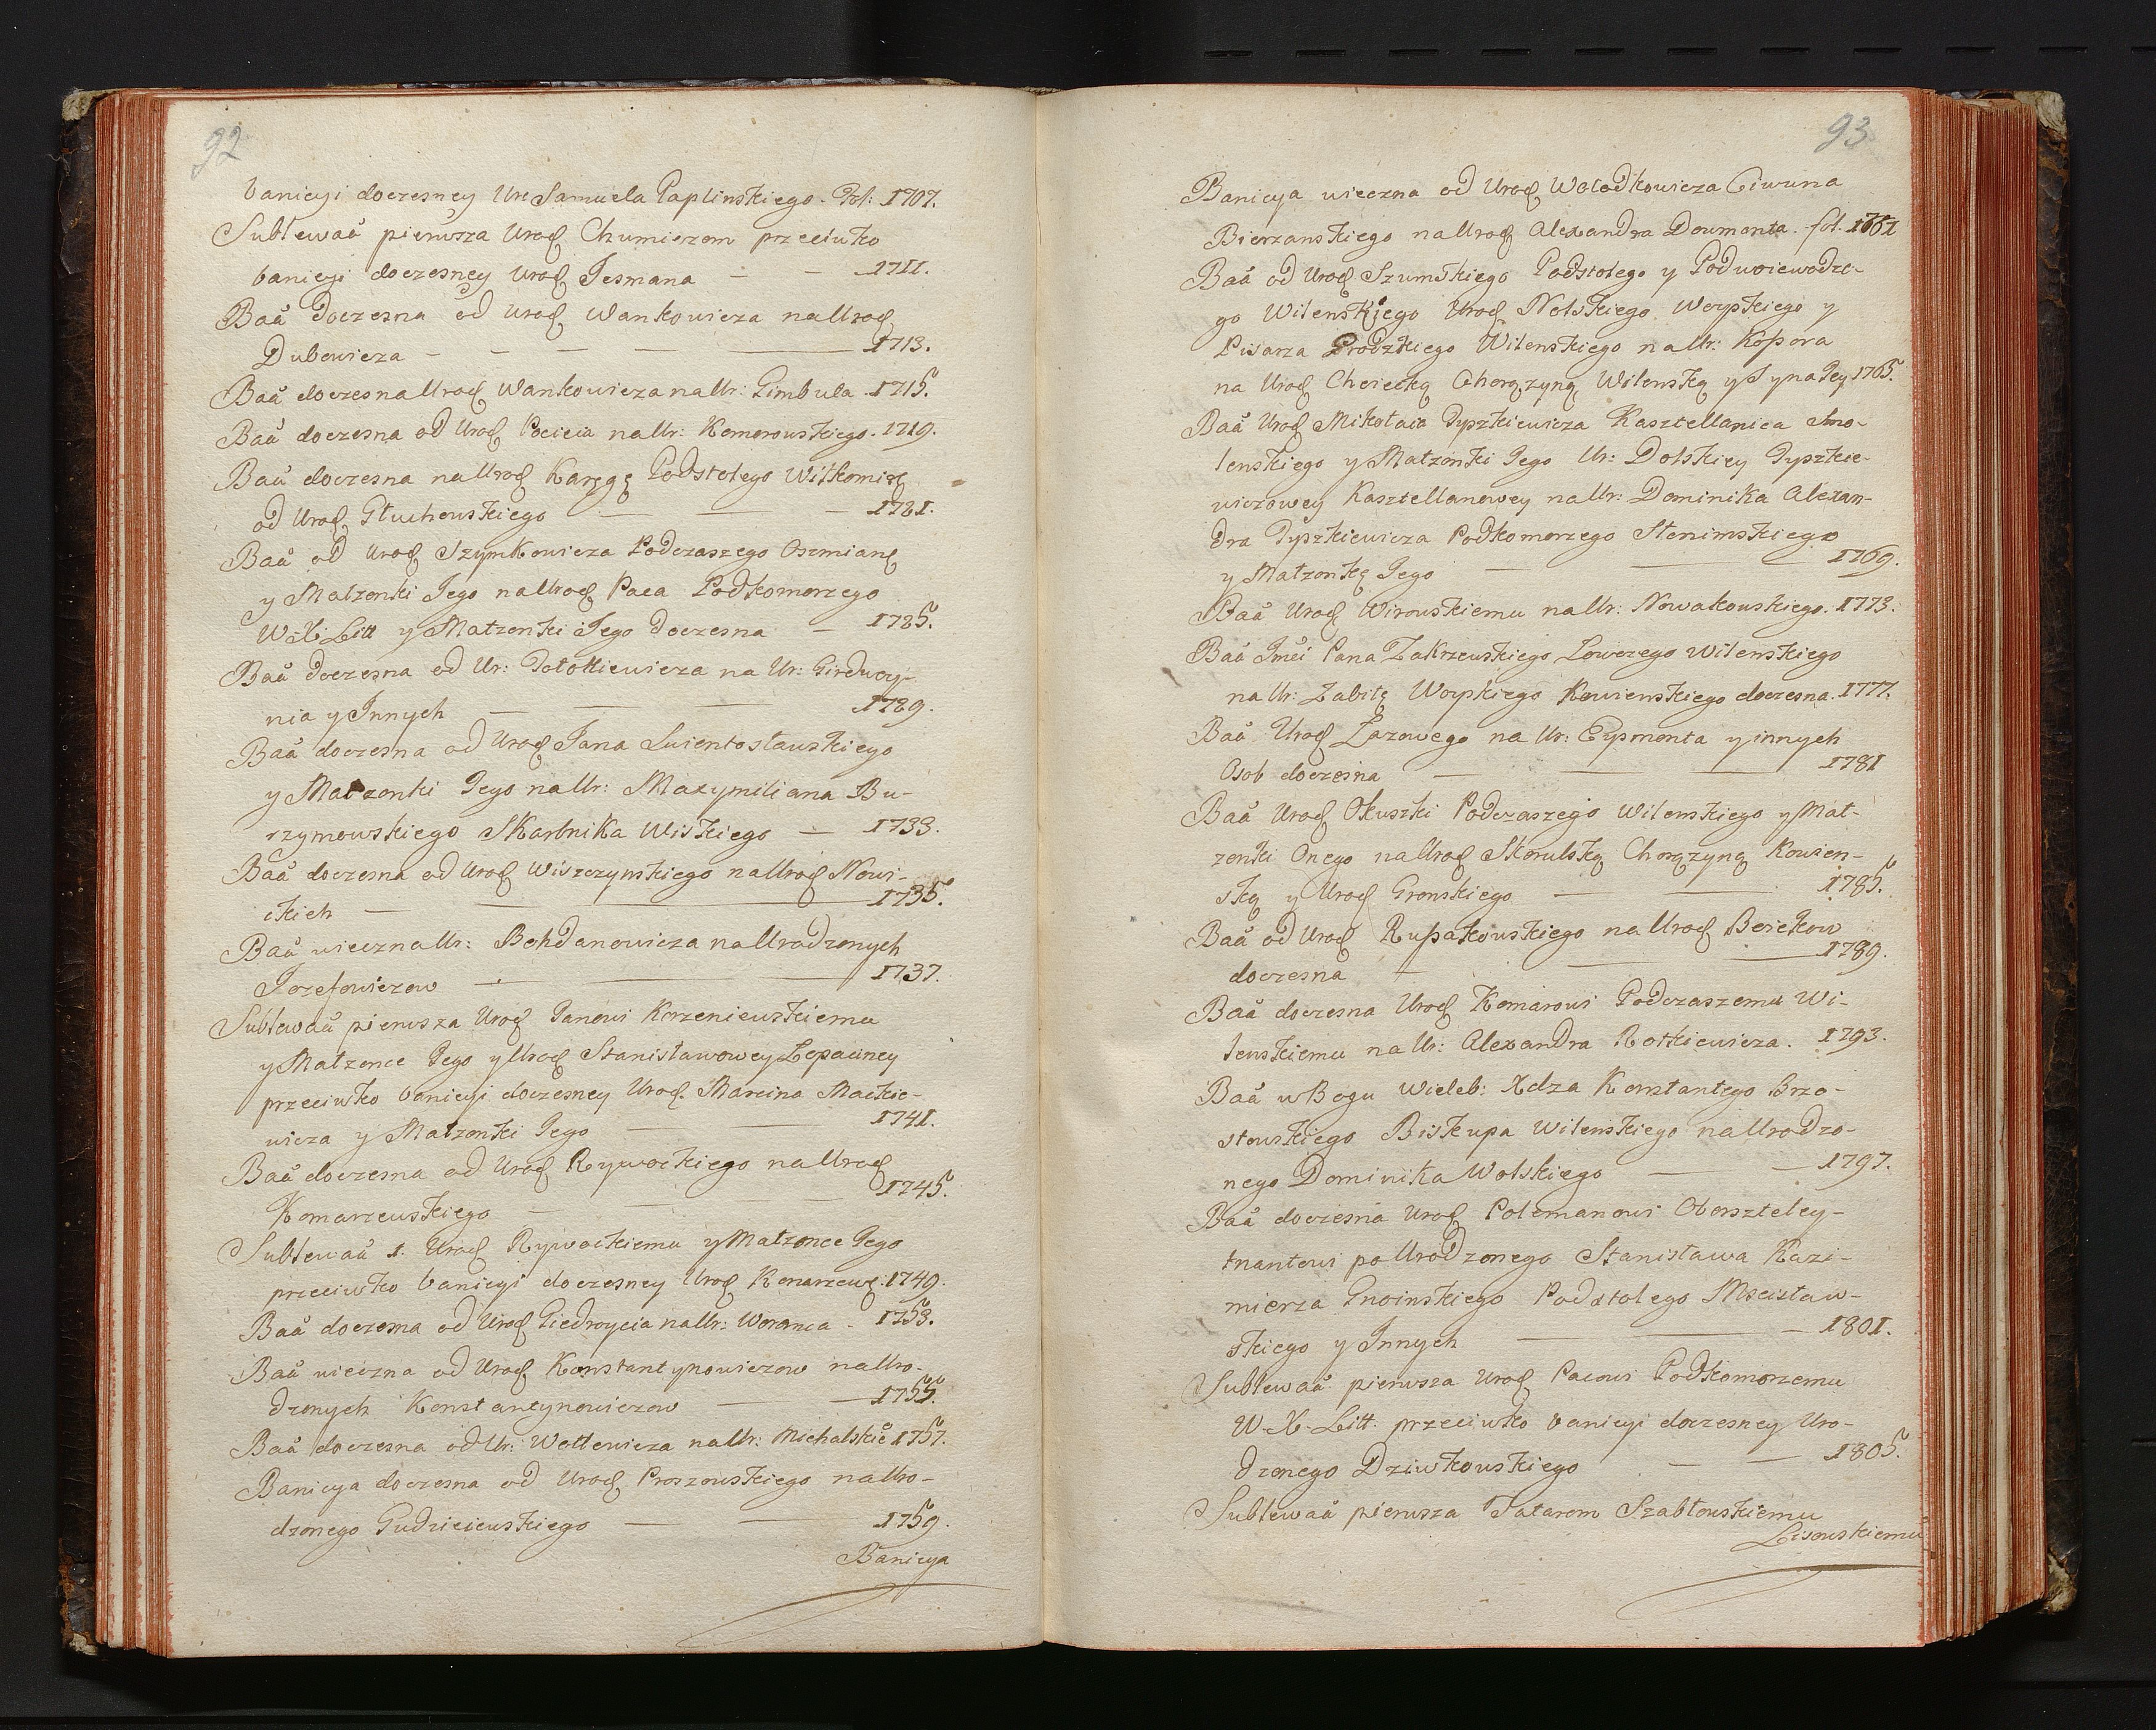 92
banicyi doczesney Ur: Samuela Paplinskiego. Fol: 1707.
Sublewaã pierwsza Urod Chumiczom przeciwko
banicyi doczesney Urod Jesmana — — 1711.
Baã doczesna od Urod Wankowicza na Urod
Dubowicza — — — — 1713.
Baã doczesna Urod Wankowicza na Ur: Gimbuta. 1715.
Baã doczesna od Urod Pocieia na Ur: Komorowskiego. 1719.
Baã doczesna na Urod Karęgę Podstolego Wiłkomirs
od Urod Głuchowskiego — — — 1721.
Baã od Urod Szymkowicza Podczaszego Oszmians
y Małzonki Jego na Urod Paca Podkomorzego
W. X. Litt y Małzonki Jego doczesna — 1725.
Baã doczesna od Ur: Dołotkiewicza na Ur: Girdwoy-
nia y Innych — — — 1729.
Baã doczesna od Urod Jana Swientosławskiego
y Małzonki Jego na Ur: Maxymiliana Bu-
rzymowskiego Skarbnika Wiskiego — 1733.
Baã doczesna od Urod Wiszczynskiego na Urod Nowi-
ckich — — — 1735.
Baã wieczna Ur: Bohdanowicza na Urodzonych
Jozefowiczow — — — 1737.
Sublewaã pierwsza Urod Janowi Korzeniewskiemu
y Małzonce Jego y Urod Stanisławowey Łopacіney
przeciwko banicyi doczesney Urod. Marcina Mackie-
wicza y Małzonki Jego — — 1741.
Baã doczesna od Urod Rywockiego na Urod
Komarzewskiego — — — 1745.
Sublewaã 1. Urod Rywockiemu y Małzonce Jego
przeciwko banicyi doczesney Urod Komarzews: 1749.
Baã doczesna od Urod Giedroycia na Ur: Woronca - 1753.
Baã wieczna od Urod Konstantynowiczow na Uro-
dzonych Konstantynowiczow — — 1755.
Baã doczesna od Ur: Wołłowicza na Ur: Michalskie 1757.
Banicya doczesna od Urod Proszowskiego na Uro-
dzonego Gudzieiewskiego — — 1759.
Banicya
93
Banicya wieczna od Urod Wołodkowicza Ciwuna
Bierzanskiego na Urod Alexandra Dowmonta. fol. 1761
Baã od Urod Szumskiego Podstolego y Podwoiewodze-
go Wilenskiego Urod Nolskiego Woyskiego y
Pisarza Grodzkiego Wilenskiego na Ur: Kopora
na Urod Chciecką Chorązyną Wilenską y Syna Jey 1765.
Baã Urod Mikołaia Tyszkiewicza Kasztellanica Smo-
lenskiego y Małzonki Jego Ur: Dolskiey Tyszkie-
wiczowey Kasztellanowey na Ur: Dominika Alexan-
dra Tyszkiewicza Podkomorzego Słonimskiego
y Małzonkę Jego — — 1769.
Baã Urod Wirowskiemu na Ur: Nowakowskiego. 1773.
Baã Jmci Pana Zakrzewskiego Łowczego Wilenskiego
na Ur: Zabiłę Woyskiego Kowienskiego doczesna. 1777.
Baã Urod Łazowego na Ur: Eysmonta y innych
Osob doczesna — — — 1781
Baã Urod Okuszki Podczaszego Wilenskiego y Mał-
zonki Onego na Urod Skorulską Chorązyną Kowien-
ską y Urod Gronskiego — — 1785.
Baã od Urod Rupakowskiego na Urod Beickow
doczesna — — — 1789.
Baã doczesna Urod Komarowi Podczaszemu Wi-
lenskiemu na Ur: Alexandra Rotkiewicza. 1793.
Baã w Bogu Wieleb: Xdza Konstantego Brzo-
stowskiego Biskupa Wilenskiego na Urodzo-
nego Dominika Wolskiego — — 1797.
Baã doczesna Urod Polemanowi Oberszteley-
tnantowi po Urodzonego Stanisława Kazi-
mierza Gnoinskiego Podstolego Mscisław-
skiego y Innych — — 1801.
Sublewaã pierwsza Urod Pacowi Podkomorzemu
W. X. Litt: przeciwko banicyi doczesney Uro-
dzonego Dziwkowskiego — — 1805.
Sublewaã pierwsza Tatarom Szabłowskiemu
Lisowskiemu